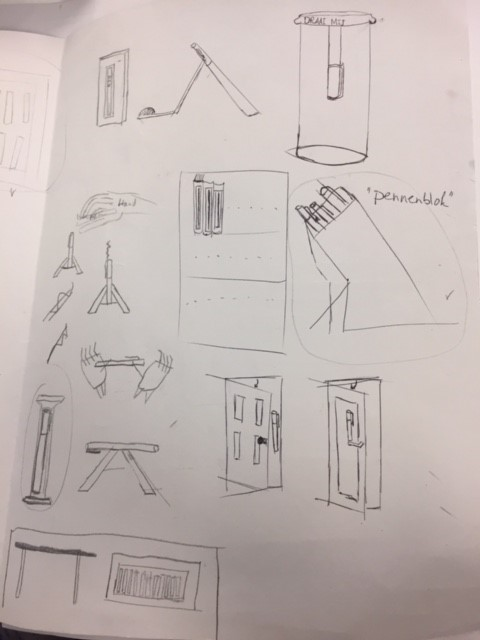 DRAAI MIJ
Hand
"pennenblok"